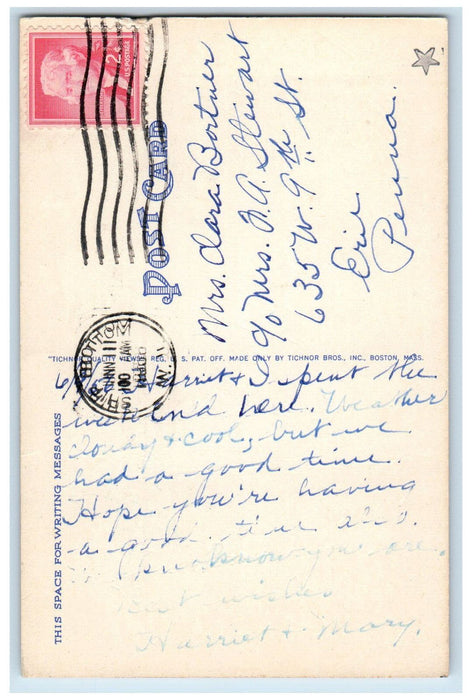 2¢
U.S. POSTAGE
POST CARD
Mrs. Cora Bortner
c/o Mrs. F. A. Stewart
635 W. 9th St.
Erie
Penna.
"TICHNOR QUALITY VIEWS," REG. U. S. PAT. OFF. MADE ONLY BY TICHNOR BROS., INC., BOSTON, MASS.
THIS SPACE FOR WRITING MESSAGES
BOTTOM
JUN
N.Y.
Harriet & I spent the
week end here. Weather
cloudy & cool, but we
had a good time.
Hope you're having
a good time also.
know you are.
Best wishes
Harriet & Mary.